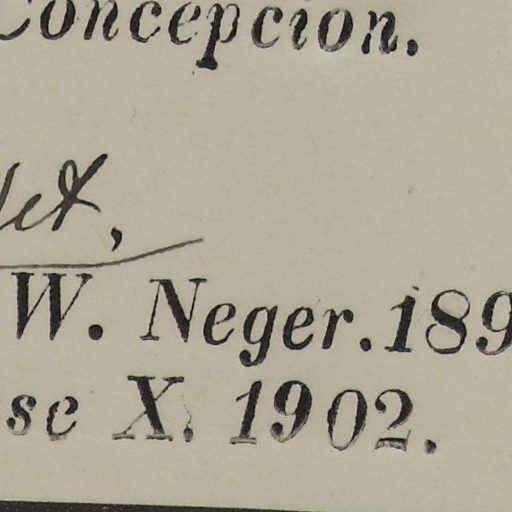 Concepcion.
et,
W. Neger. 189
se X. 1902.